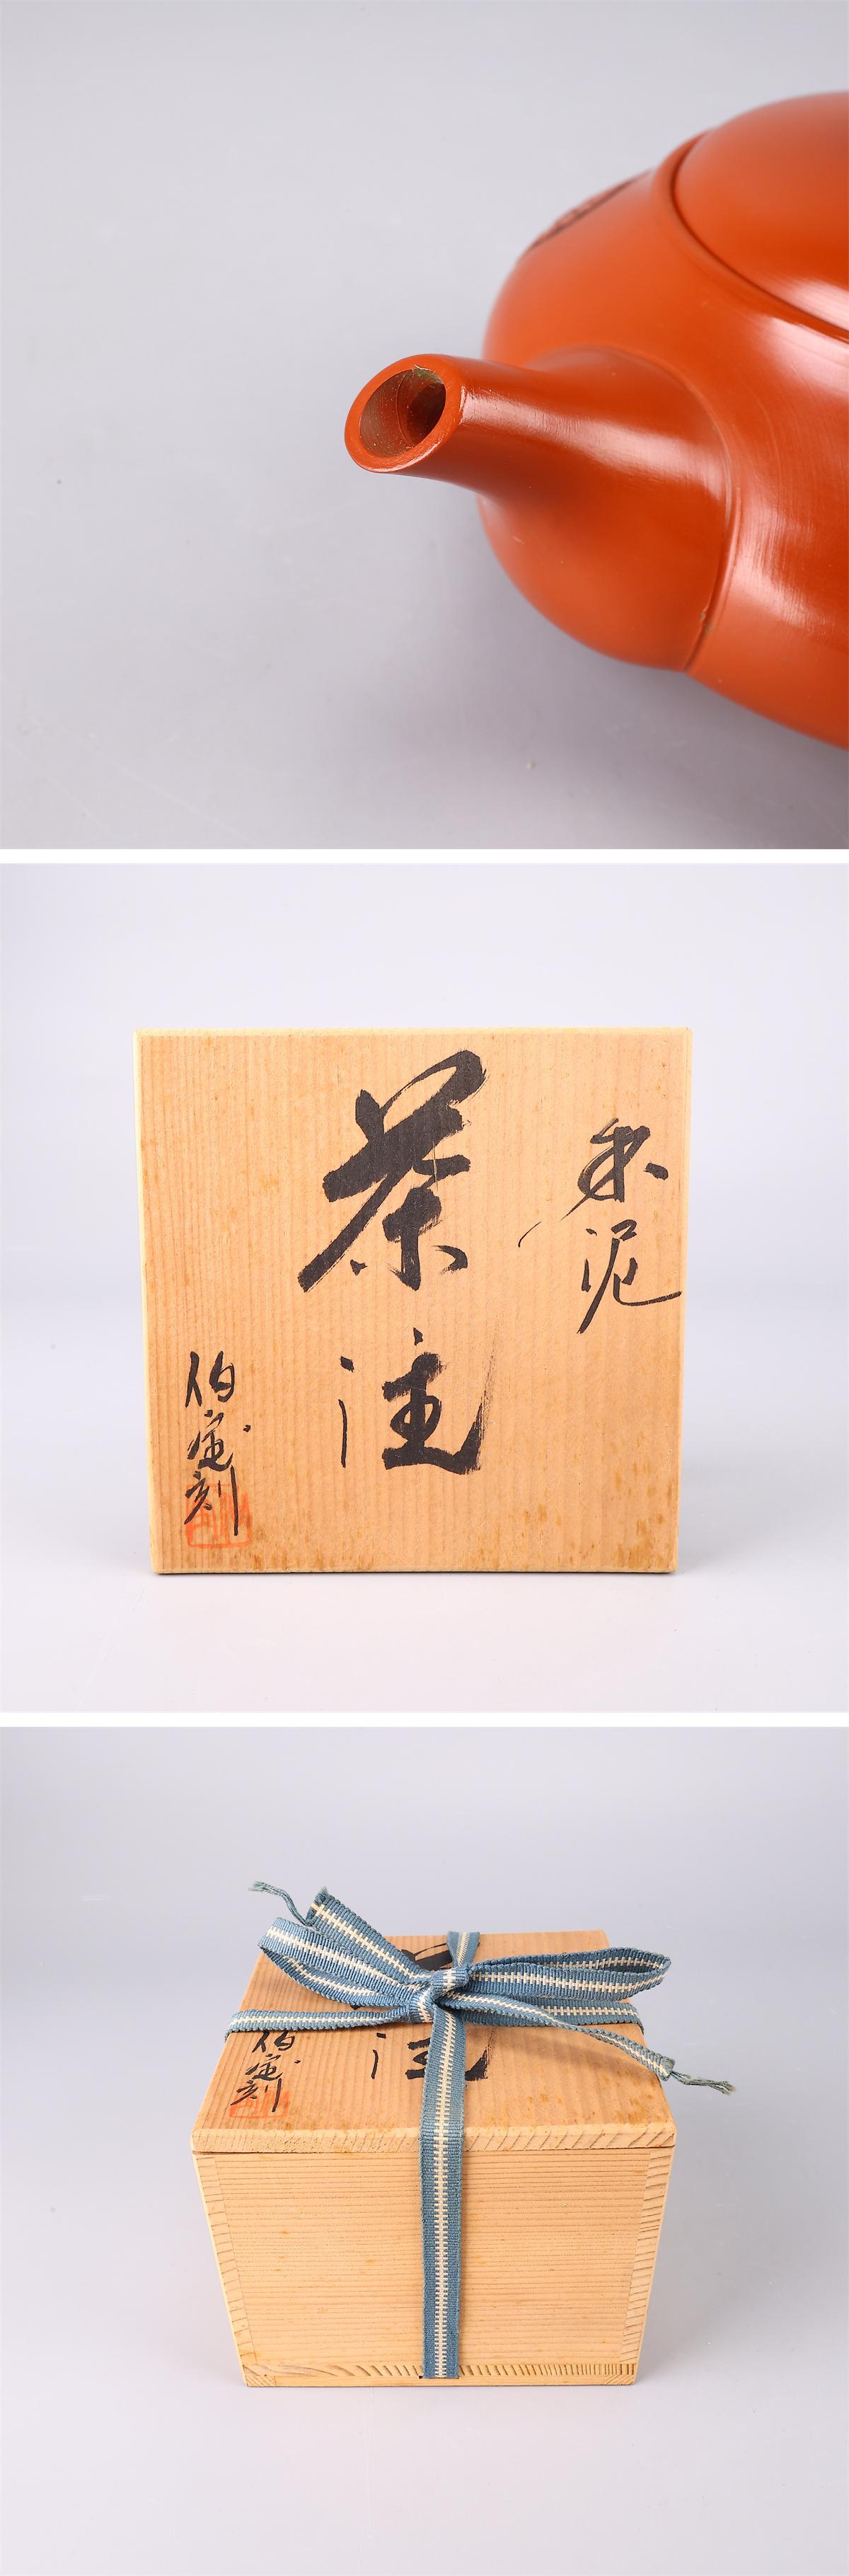 朱泥
茶注
伯宝刻
注
伯宝刻